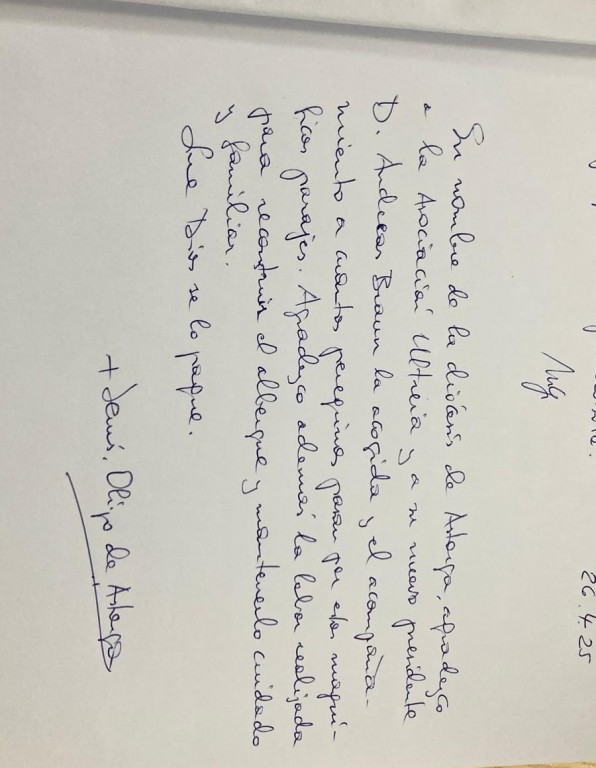 26.4.25
En nombre de la diócesis de Astorga, agradezco
a la Asociación Ultreia y a su nuevo presidente
D. Andreas Braun la acogida y el acompaña-
miento a cuantos peregrinos pasan por estos magní-
ficos parajes. Agradezco además la labor realizada
para reconstruir el albergue y mantenerlo cuidado
y familiar.
Que Dios se lo pague.
+ Jesús, Obispo de Astorga